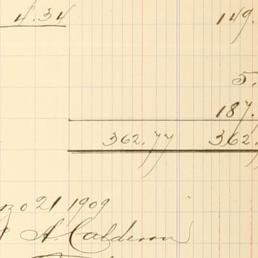 4.34 149.
5.
187.
362.77 362.
zo 21/1909
A. Calderon